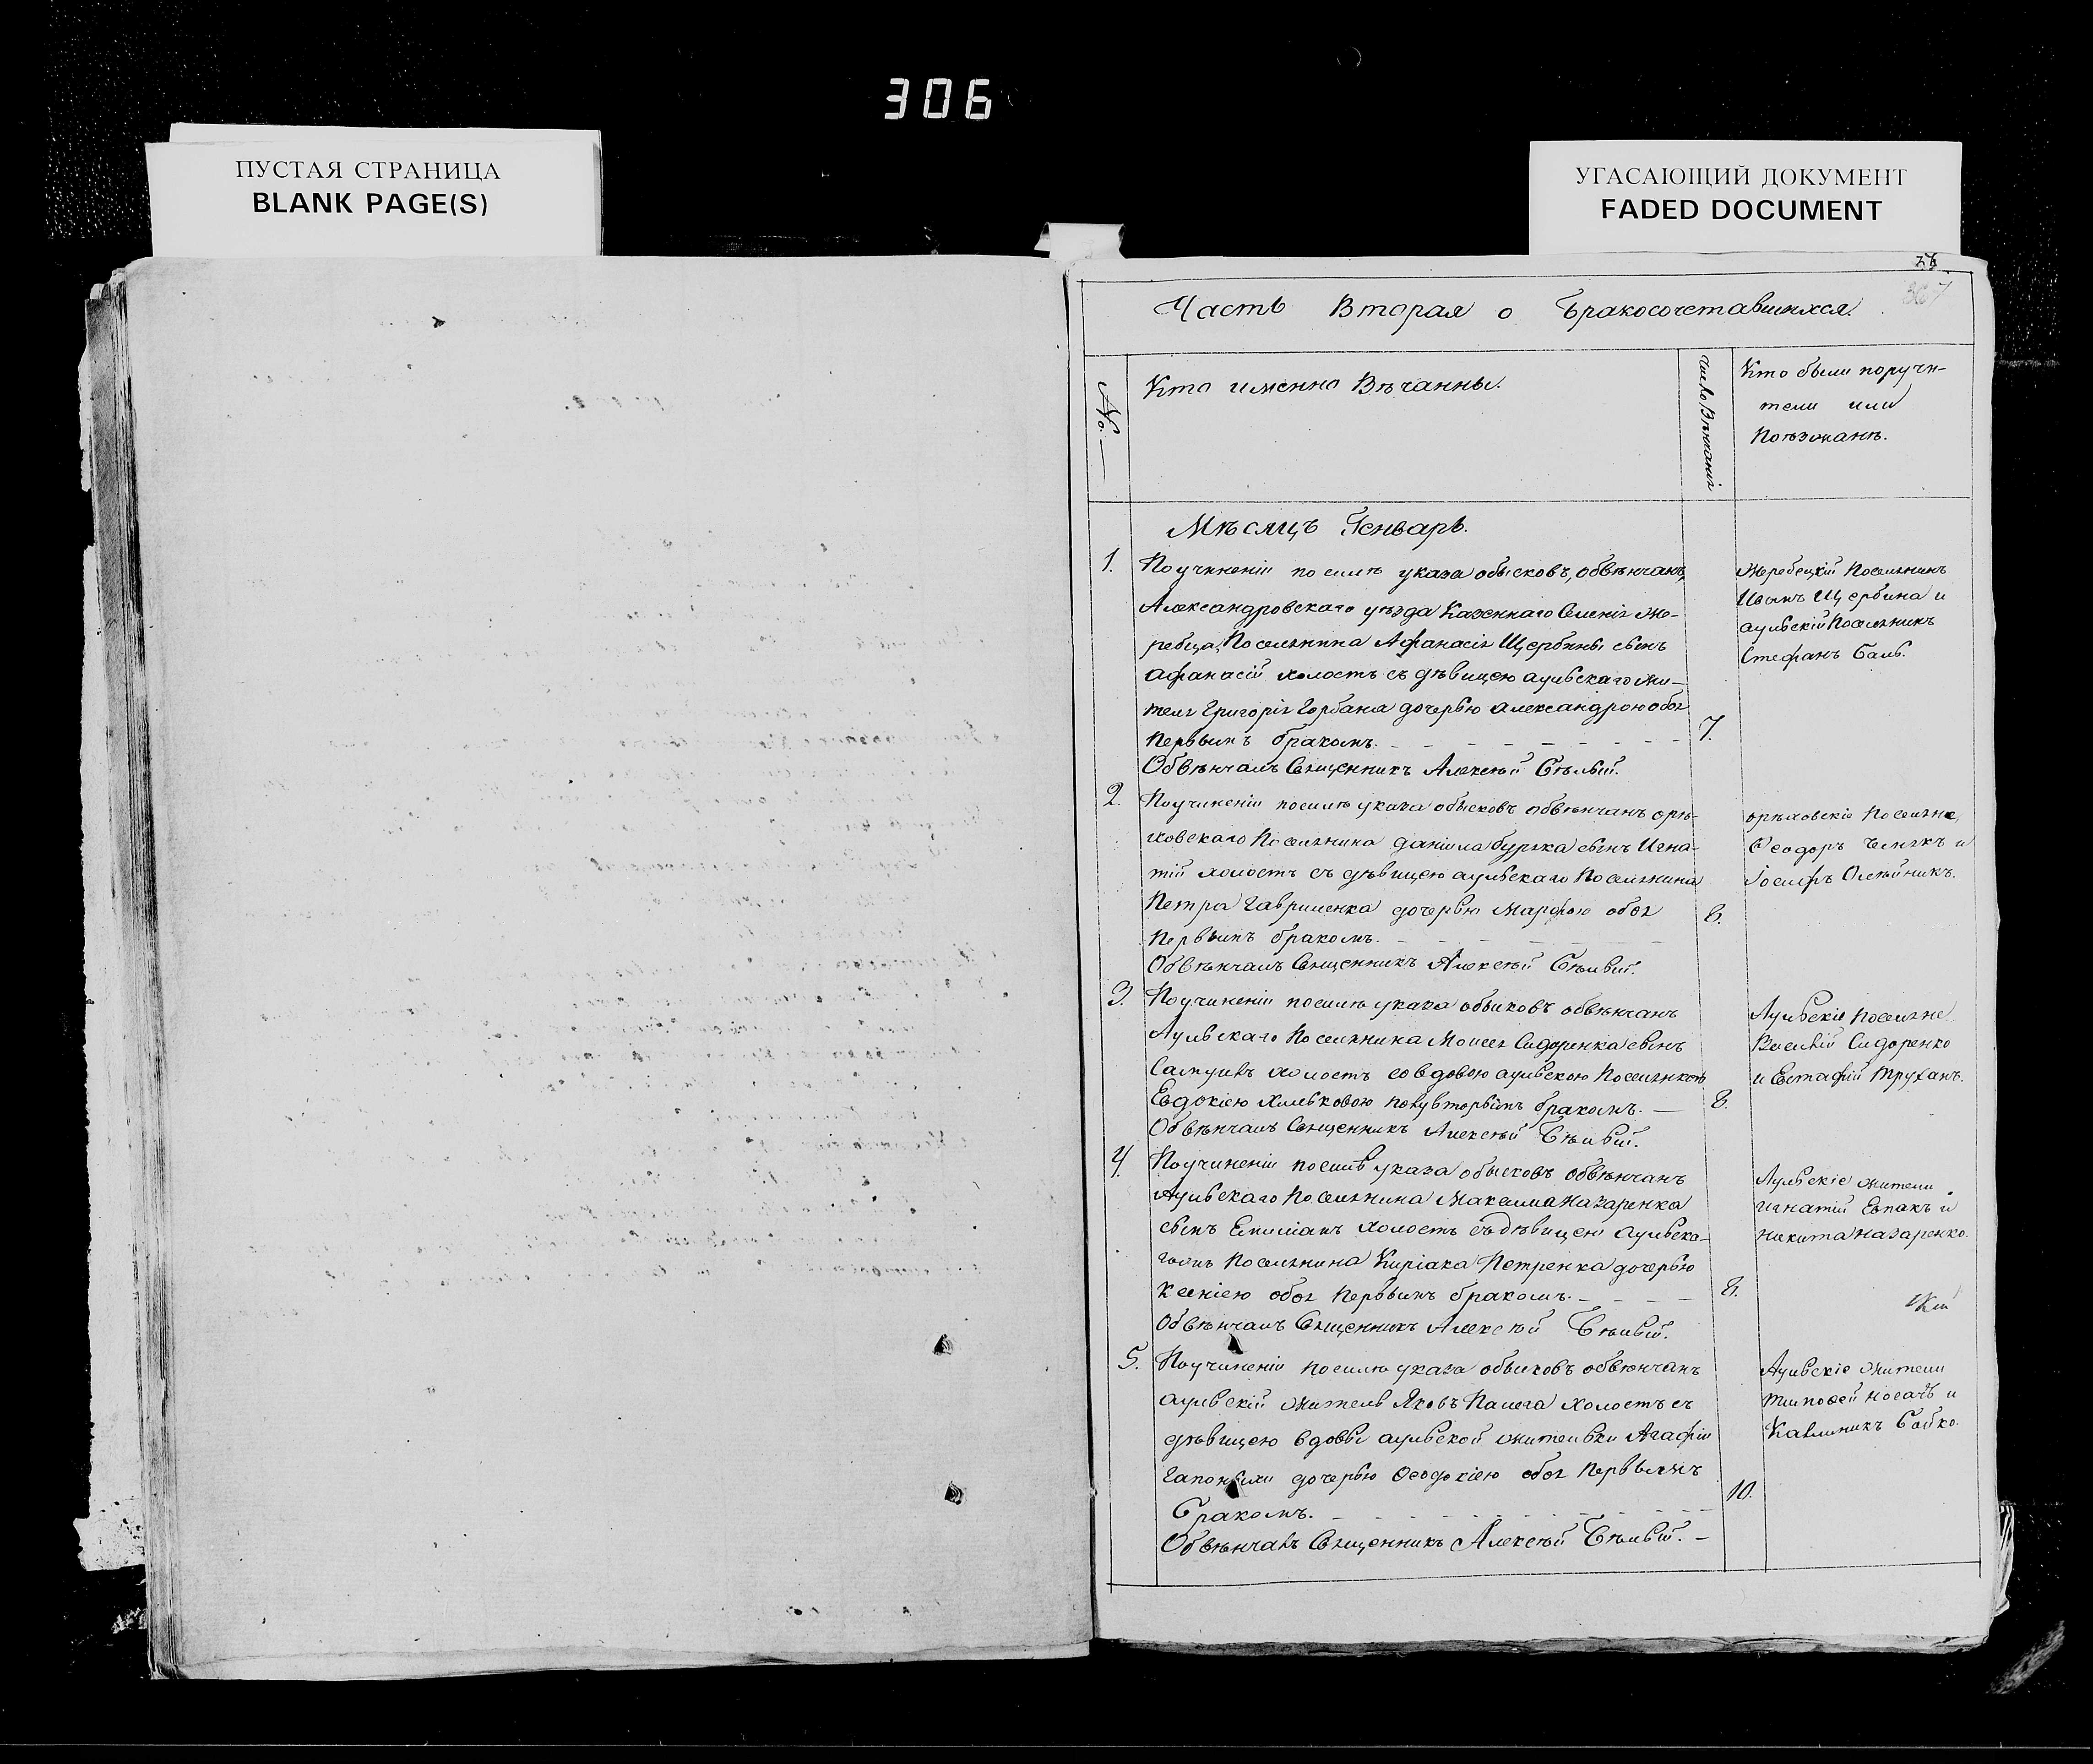 306
ПУСТАЯ СТРАНИЦА
BLANK PAGE(S)
УГАСАЮЩИЙ ДОКУМЕНТ
FADED DOCUMENT
367
Часть Вторая о Бракосочетавшихся.
№
Кто именно Вѣчанны.
Число Вѣнчанія
Кто были поручи-
тели или
Поѣзжанѣ.
Мѣсяцъ Генварь.
1.
По учиненіи по силѣ указа обысковъ, обвѣнчанъ
Александровскаго уѣзда Казеннаго Селенія Же-
ребца, Поселянина Афанасія Щербины сынъ
Афанасій холостъ съ дѣвицею аульскаго жи-
теля Григорія Горбаня дочерью Александрою обоя
Первымъ бракомъ.
7.
Обвѣнчалъ Священникъ Алексѣй Бѣлый.
Жеребецкій Поселянинъ
Иванъ Щербина и
аульскій Поселянинъ
Стефанъ Баль.
2.
По учиненіи посилѣ указа обысковъ обвѣнчанъ орѣ-
ховскаго Поселянина Даніила буряка сынъ Игна-
тій холостъ съ дѣвицею аульскаго Поселянина
Петра Гавриленка дочерью Марфою обоя
8.
Первымъ бракомъ.
Обвѣнчалъ Священникъ Алексѣй Бѣлый.
орѣховскіе Поселяне,
Ѳеодоръ и
Іосифъ Олейникъ.
3.
По учиненіи посилѣ указа обысковъ обвѣнчанъ
Аульскаго Поселянина Моисея Сидоренка сынъ
Самуилъ холостъ со вдовою аульскою Поселянкою
Евдокіею Хильковою полувторымъ бракомъ.
8.
Обвѣнчалъ Священникъ Алексѣй Бѣлый.
Аульскіе поселяне
Василій Сидоренко
и Евстафій Труханъ.
4.
По учиненіи посилѣ указа обысковъ обвѣнчанъ
Аульскаго Поселянина Максима Назаренка
сынъ Емиліанъ холостъ съ дѣвицею аульска-
гожъ Поселянина Киріака Петренка дочерью
Ксеніею обоя Первымъ бракомъ.
8.
Обвѣнчалъ Священникъ Алексѣй Бѣлый.
Аульскіе жители
Игнатій Евпакъ и
Никита Назаренко.
5.
По учиненіи посилѣ указа обысковъ обвѣнчанъ
аульскій житель Яковъ Палега холостъ съ
дѣвицею вдовы аульской жительки Агафіи
Гапонихи дочерью Ѳеодосіею обоя Первымъ
10.
Бракомъ.
Обвѣнчалъ Священникъ Алексѣй Бѣлый.
Аульскіе жители
Тимофей Носачъ и
Каленикъ Бойко.